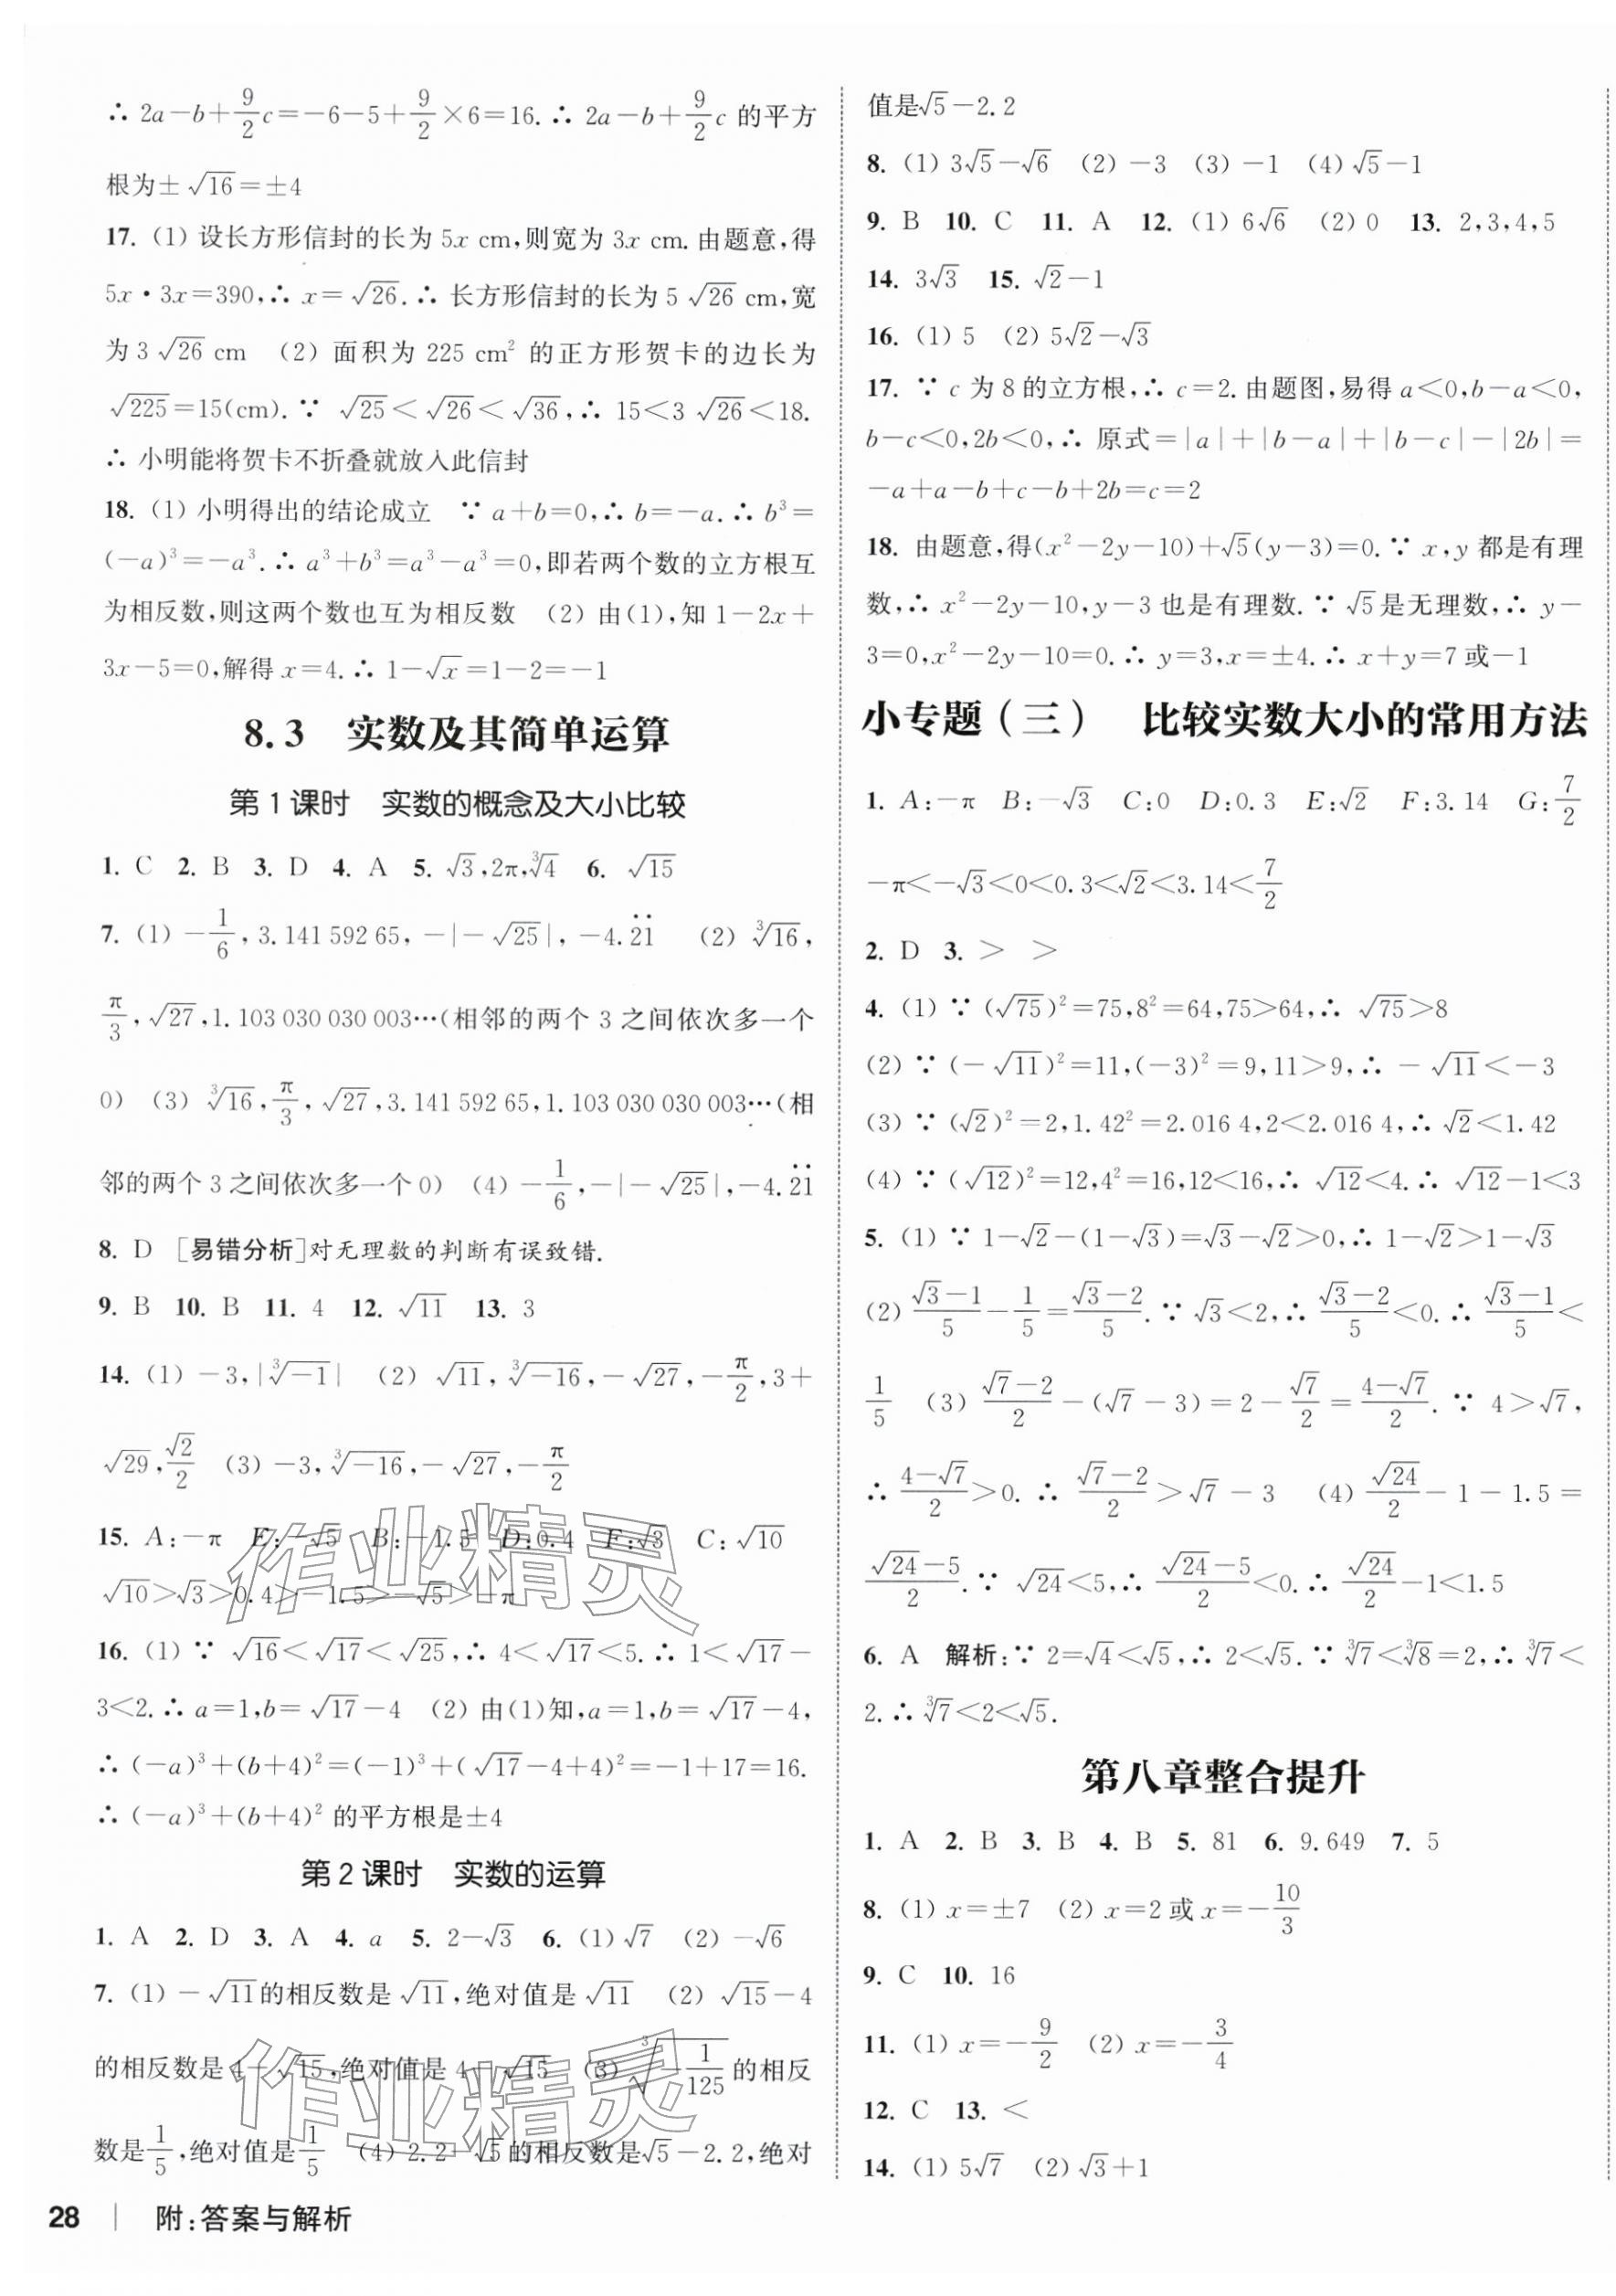 ∴ 2a－b＋9/2c＝－6－5＋9/2×6＝16. ∴ 2a－b＋9/2c 的平方
根为±√16＝±4
17. (1) 设长方形信封的长为 5x cm,则宽为 3x cm. 由题意,得
5x·3x＝390,∴ x＝√26. ∴ 长方形信封的长为 5√26 cm,宽
为 3√26 cm (2) 面积为 225 cm² 的正方形贺卡的边长为
√225＝15(cm). ∵ √25＜√26＜√36,∴ 15＜3√26＜18.
∴ 小明能将贺卡不折叠就放入此信封
18. (1) 小明得出的结论成立 ∵ a＋b＝0,∴ b＝－a. ∴ b³＝
(－a)³＝－a³. ∴ a³＋b³＝a³－a³＝0,即若两个数的立方根互
为相反数,则这两个数也互为相反数 (2) 由(1),知 1－2x＋
3x－5＝0,解得 x＝4. ∴ 1－√x＝1－2＝－1
8.3 实数及其简单运算
第 1 课时 实数的概念及大小比较
1. C 2. B 3. D 4. A 5. √3,2π,∛4 6. √15
7. (1) －1/6,3.141 592 65,－|－√25|,－4.2̇1̇ (2) ∛16,
π/3,√27,1.103 030 030 003…(相邻的两个 3 之间依次多一个
0) (3) ∛16,π/3,√27,3.141 592 65,1.103 030 030 003…(相
邻的两个 3 之间依次多一个 0) (4) －1/6,－|－√25|,－4.2̇1̇
8. D [易错分析]对无理数的判断有误致错.
9. B 10. B 11. 4 12. √11 13. 3
14. (1) －3,|∛－1| (2) √11,∛－16,－√27,－π/2,3＋
√29,√2/2 (3) －3,∛－16,－√27,－π/2
15. A:－π E:－√5 B:－1.5 D:0.4 F:√3 C:√10
√10＞√3＞0.4＞－1.5＞－√5＞－π
16. (1) ∵ √16＜√17＜√25,∴ 4＜√17＜5. ∴ 1＜√17－
3＜2. ∴ a＝1,b＝√17－4 (2) 由(1)知,a＝1,b＝√17－4,
∴ (－a)³＋(b＋4)²＝(－1)³＋(√17－4＋4)²＝－1＋17＝16.
∴ (－a)³＋(b＋4)² 的平方根是±4
第 2 课时 实数的运算
1. A 2. D 3. A 4. a 5. 2－√3 6. (1) √7 (2) －√6
7. (1) －√11的相反数是√11,绝对值是√11 (2) √15－4
的相反数是 4－√15,绝对值是 4－√15 (3) ∛－1/125的相反
数是1/5,绝对值是1/5 (4) 2.2－√5的相反数是√5－2.2,绝对
28 附:答案与解析
值是√5－2.2
8. (1) 3√5－√6 (2) －3 (3) －1 (4) √5－1
9. B 10. C 11. A 12. (1) 6√6 (2) 0 13. 2,3,4,5
14. 3√3 15. √2－1
16. (1) 5 (2) 5√2－√3
17. ∵ c 为 8 的立方根,∴ c＝2. 由题图,易得 a＜0,b－a＜0,
b－c＜0,2b＜0,∴ 原式＝|a|＋|b－a|＋|b－c|－|2b|＝
－a＋a－b＋c－b＋2b＝c＝2
18. 由题意,得(x²－2y－10)＋√5(y－3)＝0. ∵ x,y 都是有理
数,∴ x²－2y－10,y－3 也是有理数. ∵ √5是无理数,∴ y－
3＝0,x²－2y－10＝0. ∴ y＝3,x＝±4. ∴ x＋y＝7 或－1
小专题(三) 比较实数大小的常用方法
1. A:－π B:－√3 C:0 D:0.3 E:√2 F:3.14 G:7/2
－π＜－√3＜0＜0.3＜√2＜3.14＜7/2
2. D 3. ＞ ＞
4. (1) ∵ (√75)²＝75,8²＝64,75＞64,∴ √75＞8
(2) ∵ (－√11)²＝11,(－3)²＝9,11＞9,∴ －√11＜－3
(3) ∵ (√2)²＝2,1.42²＝2.016 4,2＜2.016 4,∴ √2＜1.42
(4) ∵ (√12)²＝12,4²＝16,12＜16,∴ √12＜4. ∴ √12－1＜3
5. (1) ∵ 1－√2－(1－√3)＝√3－√2＞0,∴ 1－√2＞1－√3
(2) (√3－1)/5－1/5＝(√3－2)/5. ∵ √3＜2,∴ (√3－2)/5＜0. ∴ (√3－1)/5＜
1/5 (3) (√7－2)/2－(√7－3)＝2－√7/2＝(4－√7)/2. ∵ 4＞√7,
∴ (4－√7)/2＞0. ∴ (√7－2)/2＞√7－3 (4) √24/2－1－1.5＝
(√24－5)/2. ∵ √24＜5,∴ (√24－5)/2＜0. ∴ √24/2－1＜1.5
6. A 解析:∵ 2＝√4＜√5,∴ 2＜√5. ∵ ∛7＜∛8＝2,∴ ∛7＜
2. ∴ ∛7＜2＜√5.
第八章整合提升
1. A 2. B 3. B 4. B 5. 81 6. 9.649 7. 5
8. (1) x＝±7 (2) x＝2 或 x＝－10/3
9. C 10. 16
11. (1) x＝－9/2 (2) x＝－3/4
12. C 13. ＜
14. (1) 5√7 (2) √3＋1
作业精灵
作业精灵